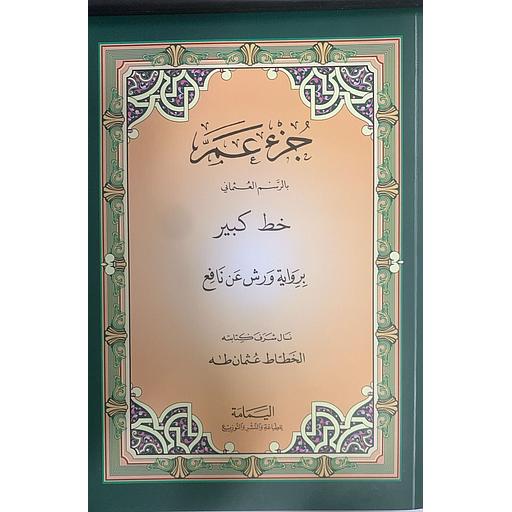 جُزْءُ عَمَّ
بالرَّسْمِ العُثْمَاني
خط كبير
بِرِوَايَة وَرش عَن نَافِع
نَال شَرَف كِتَابته
الخَطَّاط عُثمان طه
اليَمَامَة
للطِّبَاعَة وَالنَّشْرِ وَالتَّوزيع